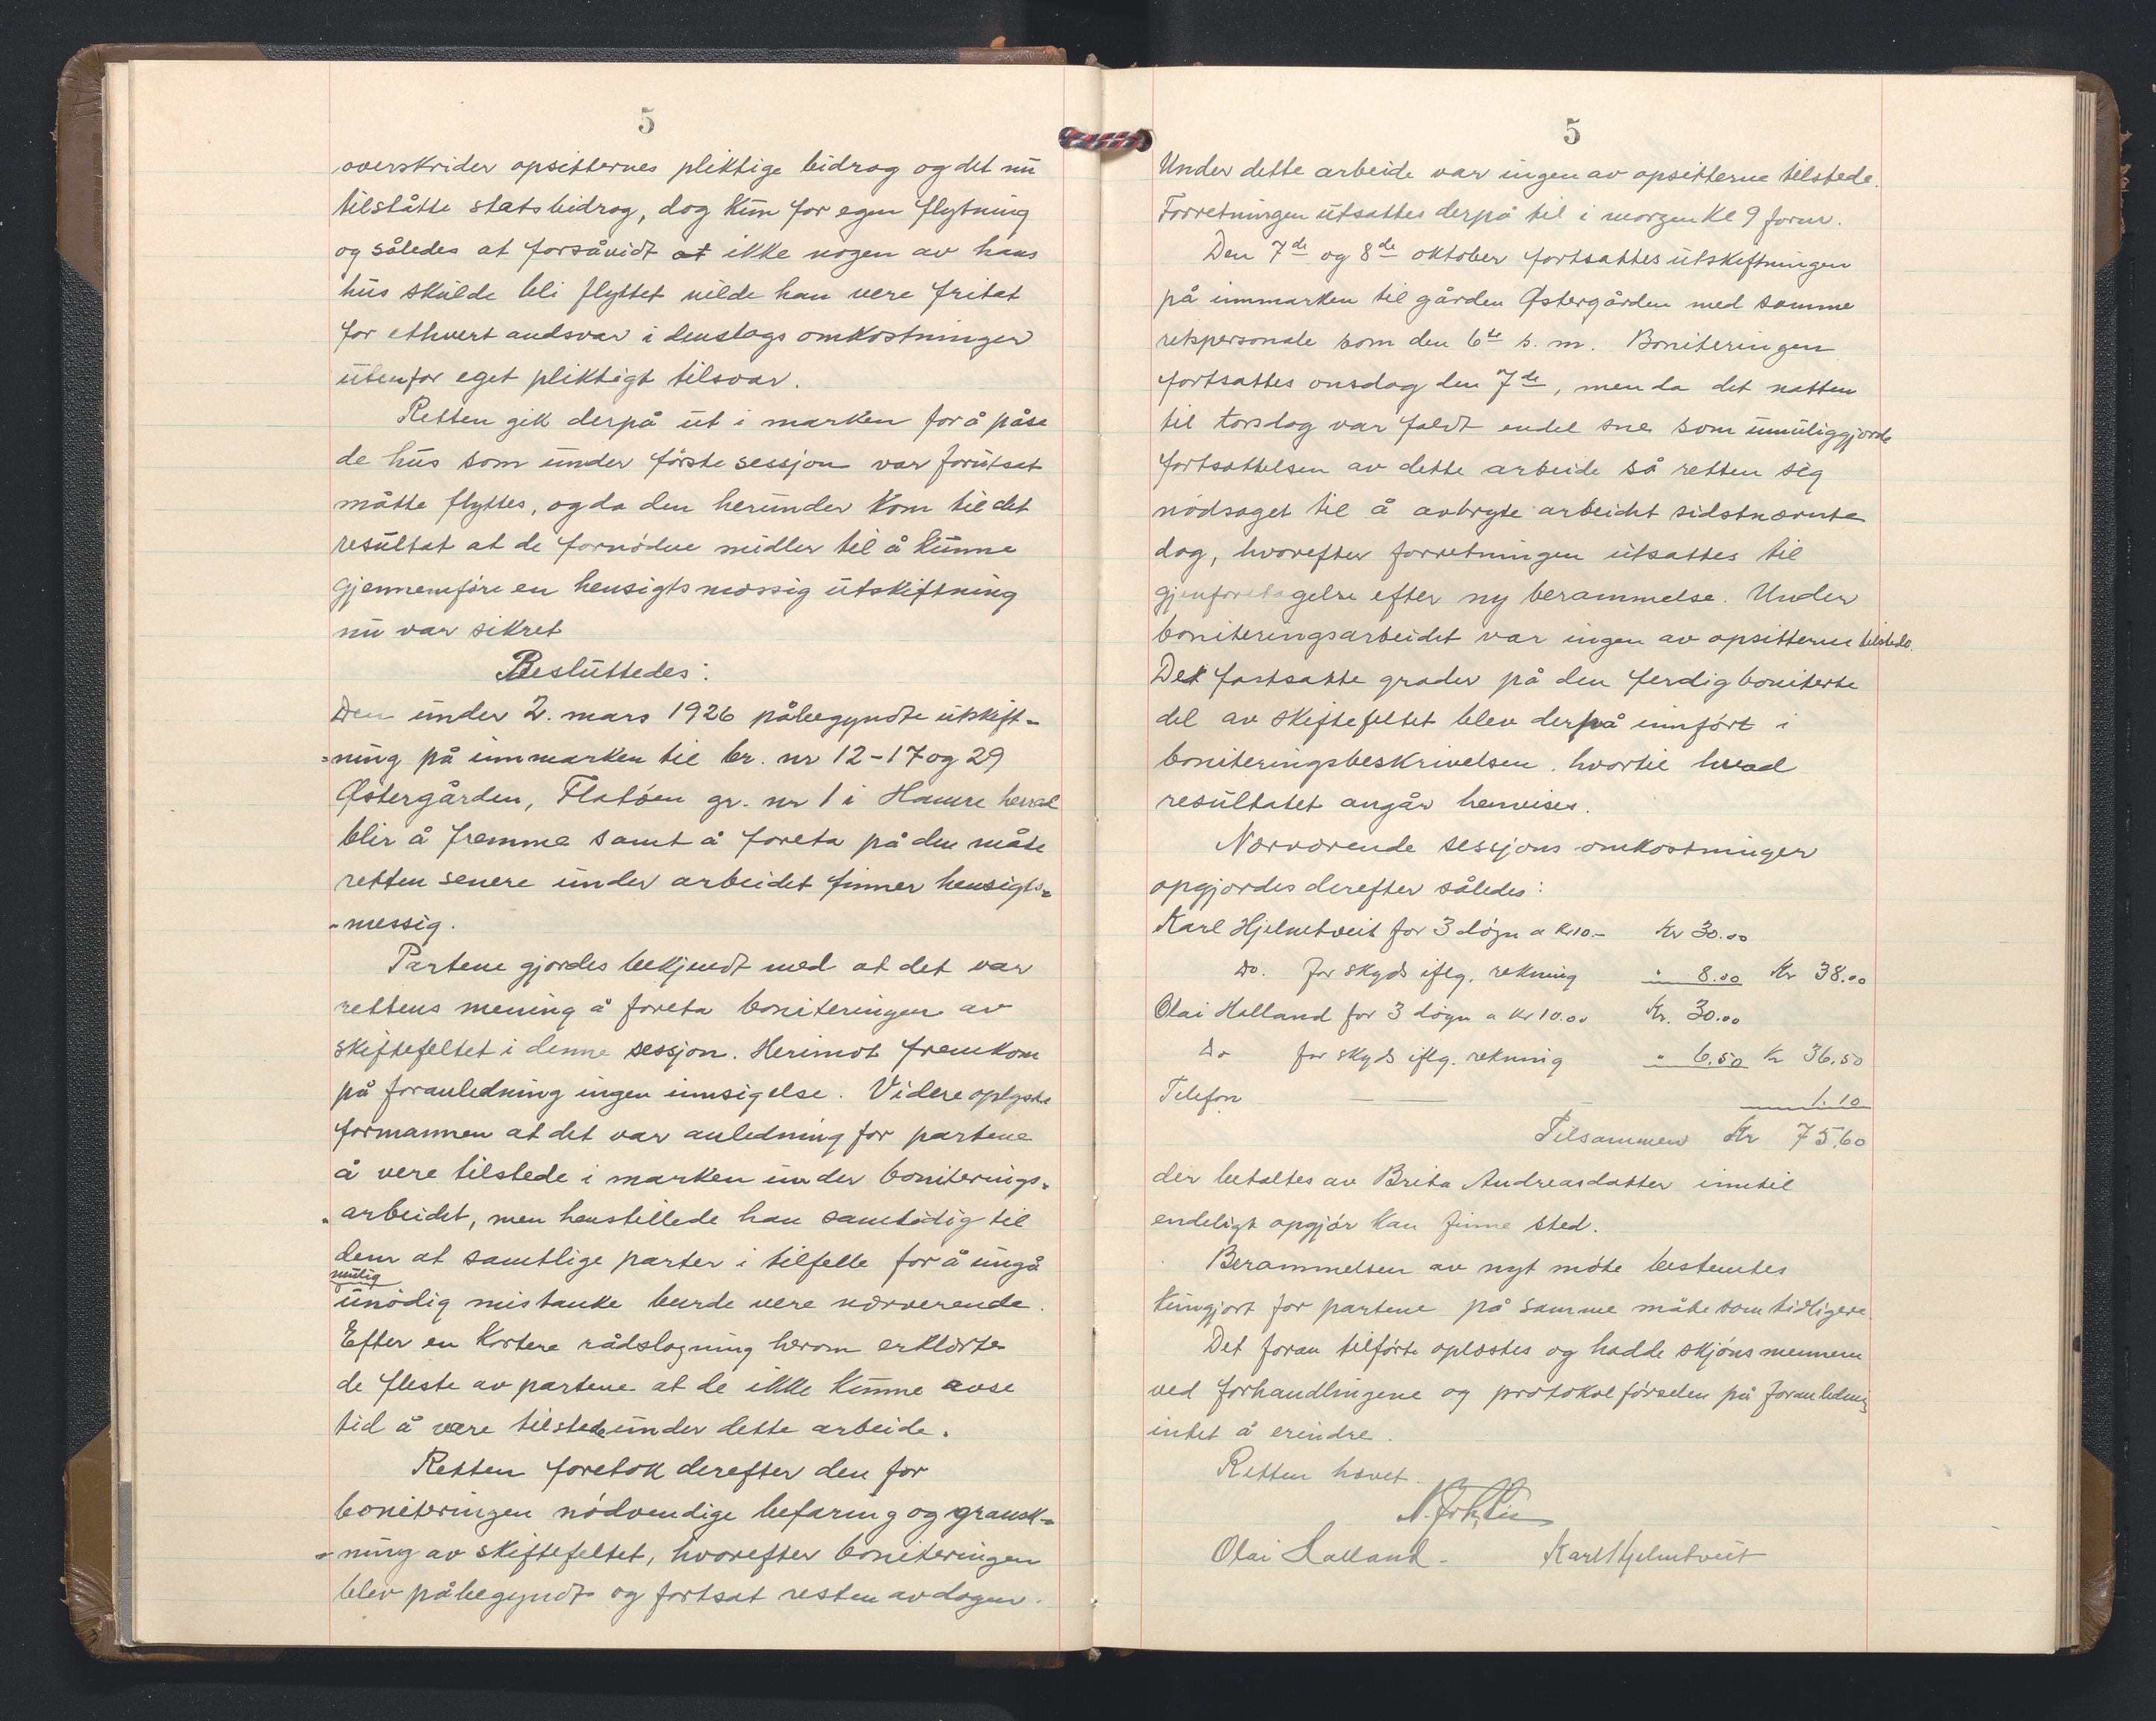 5
overskrider opsitternes pliktige bidrag og det nu
tilståtte statsbidrag, dog kun for egen flytning
og således at forsåvidt at ikke nogen av hans
hus skulde bli flyttet vilde han vere fritat
for ethvert andsvar i denslags omkostninger
utenfor eget pliktigt tilsvar.
Retten gik derpå ut i marken for å påse
de hus som under første sessjon var forutsat
måtte flyttes, og da den herunder kom til det
resultat at de fornødne midler til å kunne
gjennemføre en hensigtsmæssig utskiftning
nu var sikret
Besluttedes:
Den under 2. mars 1926 påbegyndte utskift-
-ning på innmarken til br. nr 12-17 og 29
Østergården, Flatøen gr. nr 1 i Hamre herred
blir å fremme samt å foreta på den måte
retten senere under arbeidet finner hensigts-
-messig.
Partene gjordes bekjendt med at det var
rettens mening å foreta boniteringen av
skiftefeltet i denne sessjon. Herimot fremkom
på foranledning ingen innsigelse. Videre oplyste
formannen at det var anledning for partene
å vere tilstede i marken under boniterings-
-arbeidet, men henstillede han samtidig til
dem at samtlige parter i tilfelle for å ungå
mulig
unødig mistanke burde vere nærverende.
Efter en kortere rådslagning herom erklærte
de fleste av partene at de ikke kunne avse
tid å være tilstede under dette arbeide.
Retten foretok derefter den for
boniteringen nødvendige befaring og gransk-
-ning av skiftefeltet, hvorefter boniteringen
blev påbegyndt og fortsat resten av dagen.
5
Under dette arbeide var ingen av opsitterne tilstede.
Forretningen utsattes derpå til i morgen kl 9 form.
Den 7de og 8de oktober fortsattes utskiftningen
på innmarken til gården Østergården med samme
retspersonale som den 6te s. m. Boniteringen
fortsattes onsdag den 7de, men da det natten
til torsdag var faldt endel sne som umuliggjorde
fortsættelsen av dette arbeide så retten sig
nødsaget til å avbryte arbeidet sidstnævnte
dag, hvorefter forretningen utsattes til
gjenforetagelse efter ny berammelse. Under
boniteringsarbeidet var ingen av opsitterne tilstede.
Det fastsatte grader på den ferdig boniterte
del av skiftefeltet blev derpå innført i
boniteringsbeskrivelsen, hvortil hvad
resultatet angår henvises.
Nærværende sessjons omkostninger
opgjordes derefter således:
Karl Hjelmtveit for 3 døgn a kr 10.- Kr 30.00
Do. for skyds iflg. rekning " 8.00 Kr 38.00
Olai Halland for 3 døgn a kr 10.00 Kr. 30.00
Do for skyds iflg. rekning " 6.50 Kr 36.50
Telefon — — 1.10
Tilsammen Kr 75.60
der betaltes av Brita Andreasdatter inntil
endeligt opgjør kan finne sted.
Berammelsen av nyt møte bestemtes
kungjort for partene på samme måte som tidligere.
Det foran tilførte oplæstes og hadde skjønsmennene
ved forhandlingene og protokolførselen på foranledning
intet å erindre.
Retten hævet.
Olai Halland. Karl Hjelmtveit